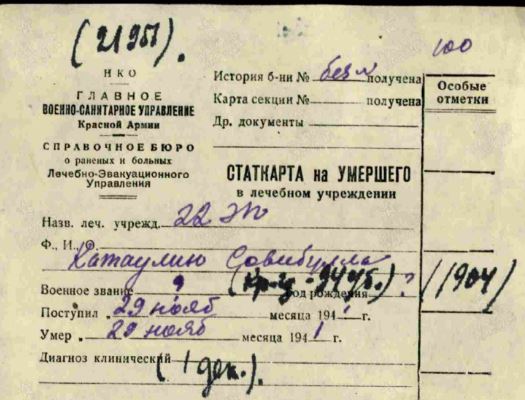 (21951).
100
НКО
ГЛАВНОЕ
ВОЕННО-САНИТАРНОЕ УПРАВЛЕНИЕ
Красной Армии
СПРАВОЧНОЕ БЮРО
о раненых и больных
Лечебно-Эвакуационного
Управления
История б-ни № без № получена
Карта секции № получена
Др. документы
Особые
отметки
СТАТКАРТА на УМЕРШЕГО
в лечебном учреждении
Назв. леч. учрежд. 22
Ф., И., О.
Катаулин
Военное звание ? год рождения ? (1904)
Поступил 29 нояб месяца 1941 г.
Умер 29 нояб месяца 1941 г.
Диагноз клинический
(1 дек.).